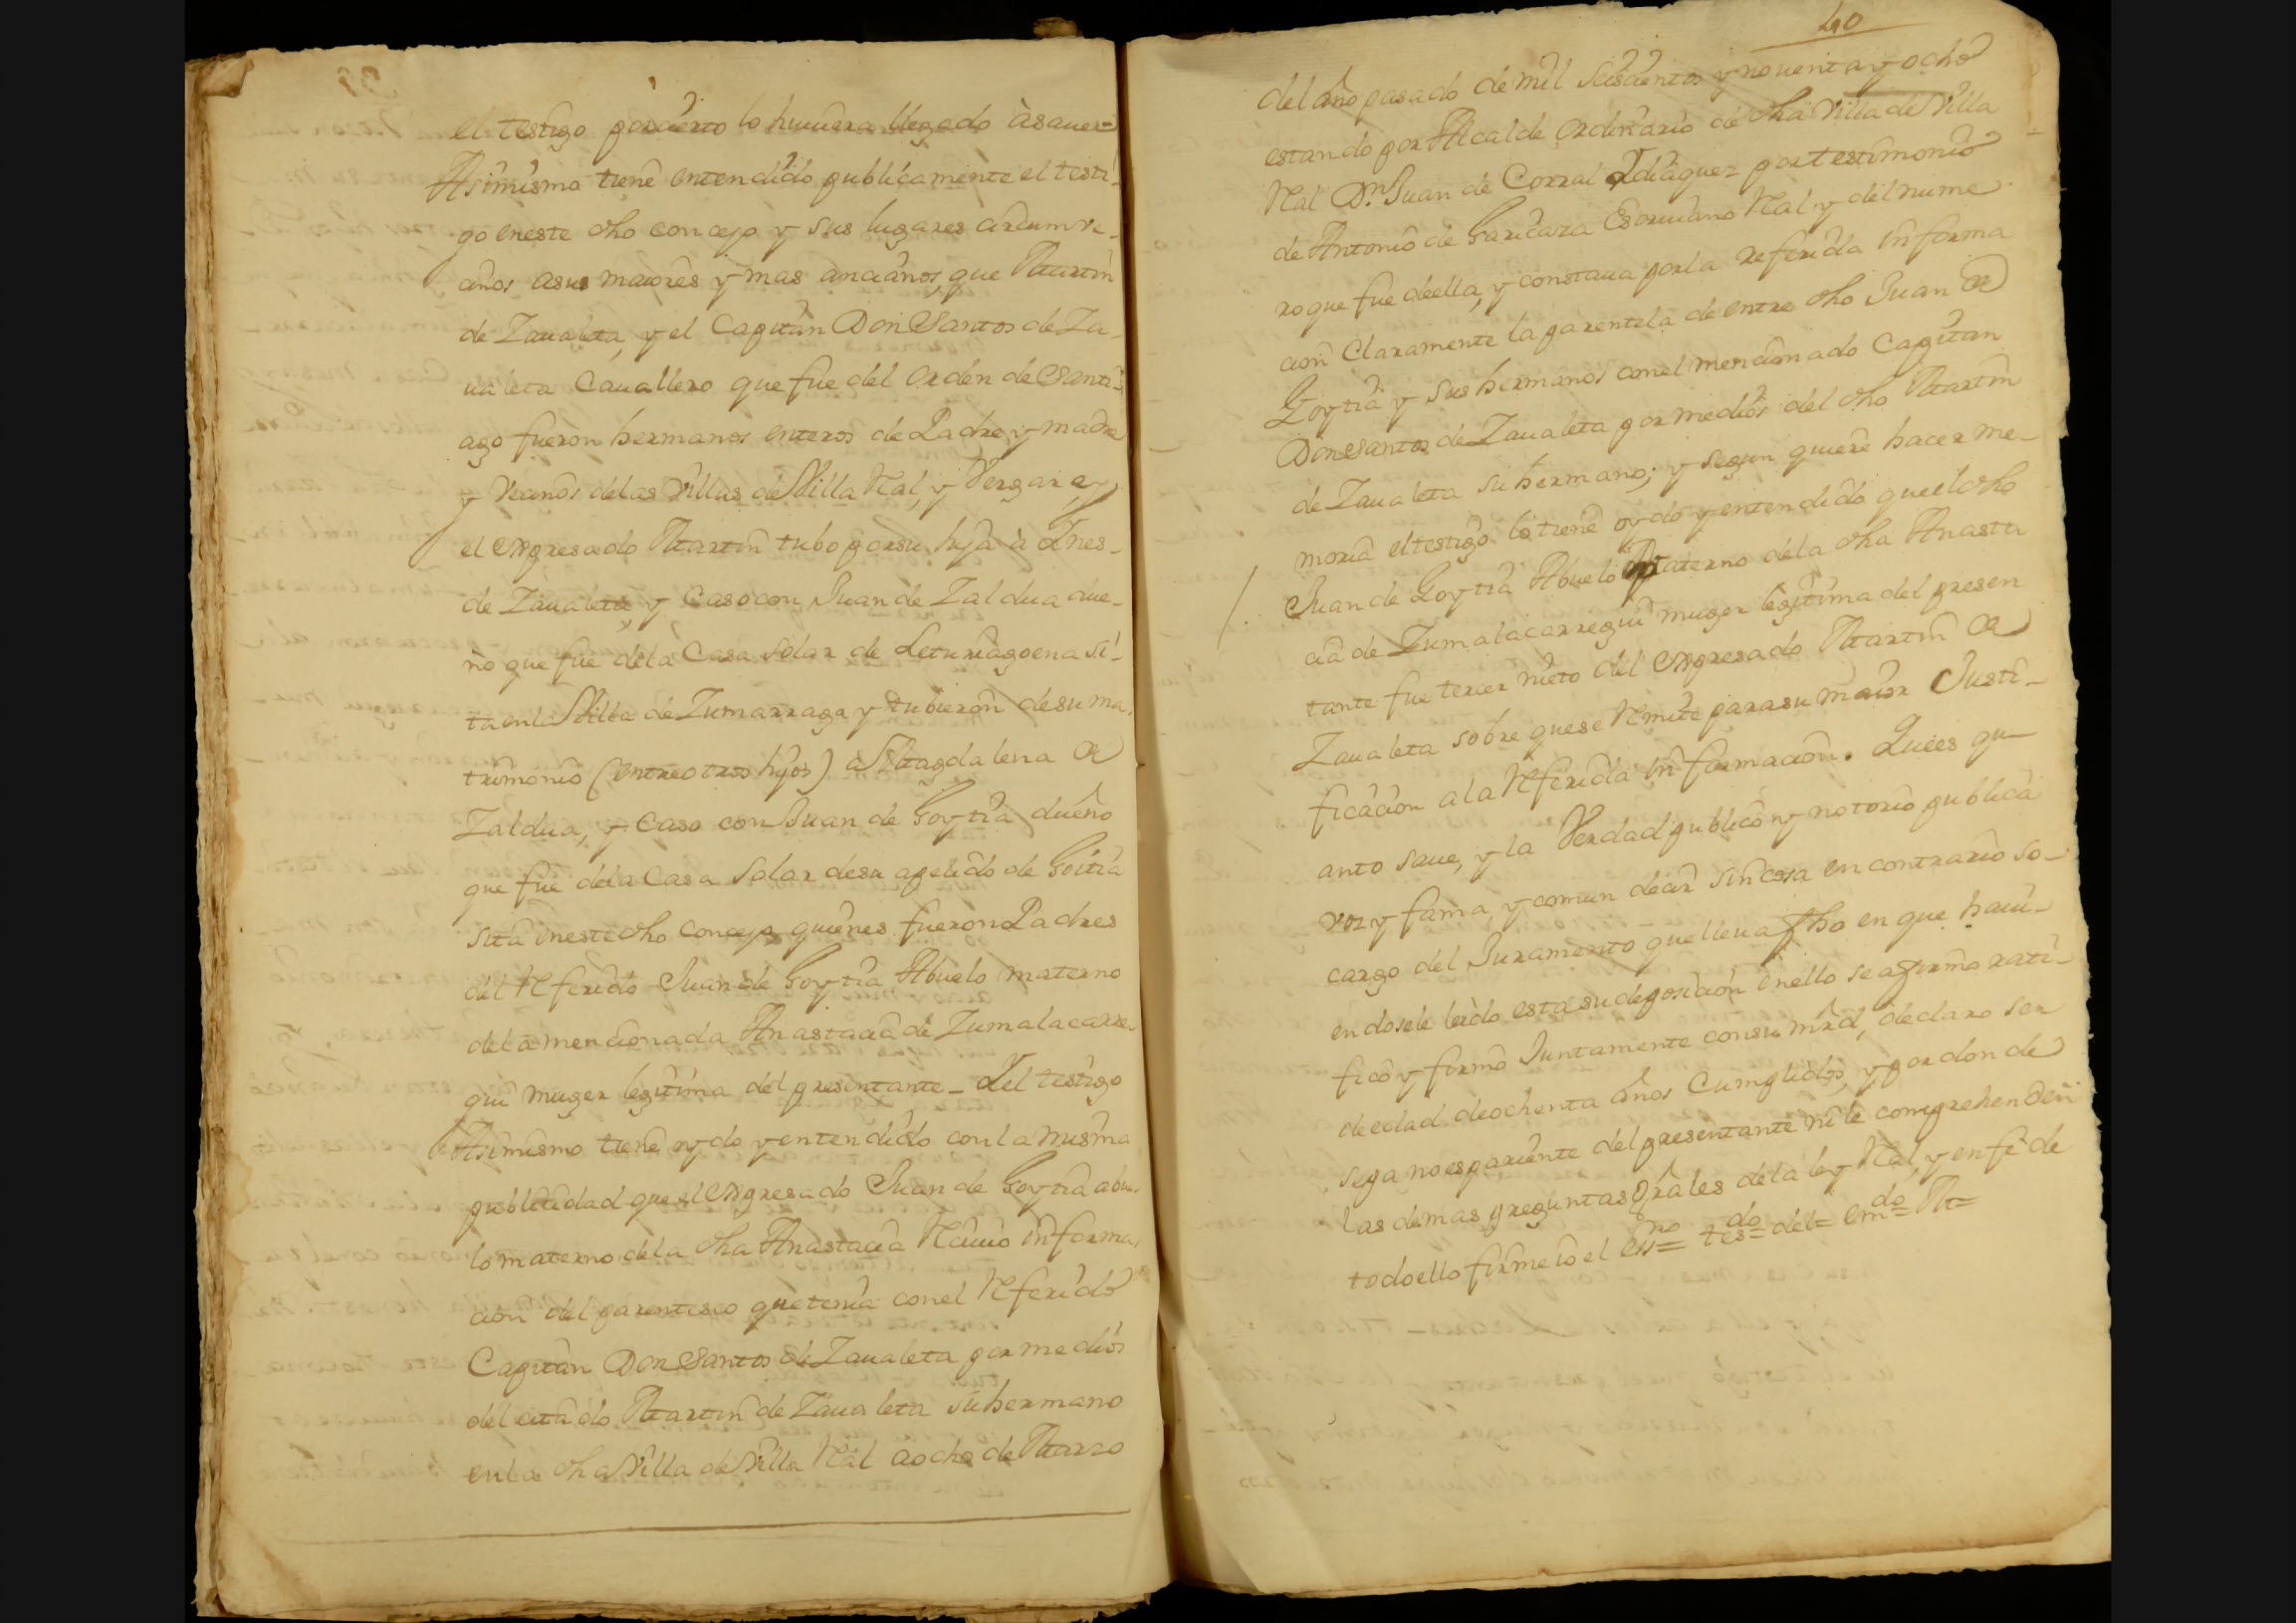 el testigo por cierto lo huuiera llegado à sauer=
Asimismo tiene entendido publicamente el testi-
go en este dho concejo y sus lugares circumve-
cinos a sus maiores y mas ancianos, que Martin
de Zaualeta, y el Capitan Don Santos de Za-
ualeta Cauallero que fue del orden de Santi-
ago fueron hermanos enteros de Padre y madre
y Vecinos de las Villas de Villa Ral, y Vergara, y
el expresado Martin tubo por su hija à Ynes-
de Zaualeta, y Caso con Juan de Zaldua due-
ño que fue de la Casa solar de Leturiagoena si-
ta en la Villa de Zumarraga y tubieron de su ma-
trimonio (entre otros hijos) à Magdalena de
Zaldua, y Caso con Juan de Goytia dueño
que fue de la Casa Solar de su apelido de Goitia
sita en este dho concejo quienes fueron Padres
del Referido Juan de Goytia Abuelo materno
de la mencionada Anastacia de Zumalacarre-
gui muger legitima del presentante- Y el testigo
Asimismo tiene oydo y entendido con la misma
publicidad que el expresado Juan de Goytia abue-
lo materno de la dha Anastacia Reciuio informa-
cion del parentesco que tenia con el Referido
Capitan Don Santos de Zaualeta por medios
del citado Martin de Zaualeta su hermano
en la dha Villa de Villa Ral a ocho de Marzo
40
del año pasado de mil Seiscientos y nouenta y ocho
estando por Alcalde Ordinario de dha Villa de Villa
Ral Dn. Juan de Corral Ydiaquez por testimonio
de Antonio de Garicaza Escriuano Ral y del nume
ro que fue de ella, y constaua por la referida informa
cion Claramente la parentela de entre dho Juan de
Goytia y sus hermanos con el mencionado Capitan
Don Santos de Zaualeta por medios del dho Martin
de Zaualeta su hermano; y segun quiere hacer me-
moria el testigo lo tiene oydo y entendido que el dho
Juan de Goytia Abuelo Materno de la dha Anasta
cia de Zumalacarregui muger legitima del presen
tante fue tercer nieto del expresado Martin de
Zaualeta sobre que se Remite para su maior Justi-
ficacion a la Referida informacion. Que es qu-
anto saue, y la Verdad publico y notorio publica
voz y fama, y comun decir sin cosa en contrario so-
cargo del Juramento que lleua fho en que haui-
endosele leido esta su deposicion en ello se afirmo rati-
fico y firmo Juntamente con su mrd, declaro ser
de edad de ochenta años Cumplidos, y por donde
sepa no es pariente del presentante ni le comprehenden
las demas preguntas Grales de la ley Ral, y en fe de
todo ello firme io el essno= tesdo= del= emdo= M=